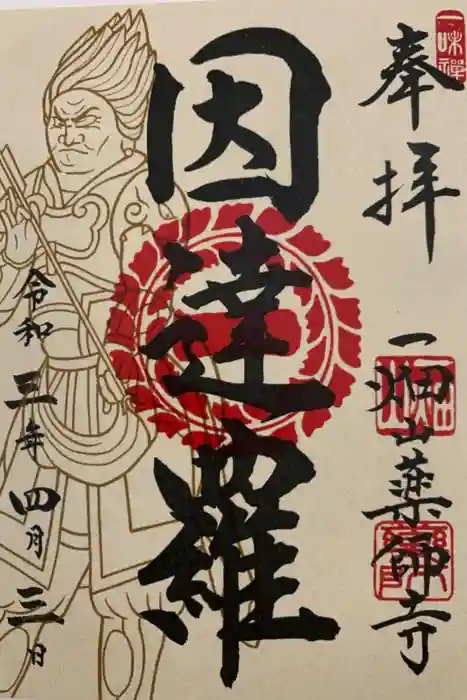 一味禅
奉拝
一畑山薬師寺
因達羅
令和三年四月三日